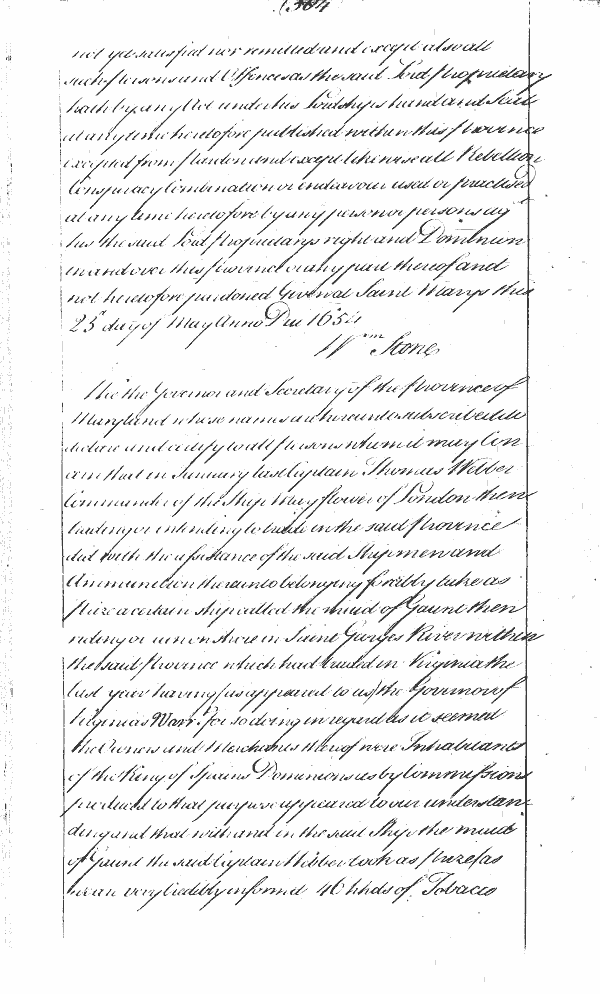 (304
not yet satisfied nor remitted and except also all
such Persons and Offences as the said Lord Proprietary
hath by any Act under his Lordships hand and Seal
at any time heretofore published within this Province
excepted from Pardon and except likewise all Rebellion
Conspiracy Combination or endeavour used or practised
at any time heretofore by any person or persons agt
his the said Lord Proprietarys right and Dominion
in and over this Province or any part thereof and
not heretofore pardoned Given at Saint Marys this
23d day of May Anno Dni 1654
Wm Stone
We the Governor and Secretary of the Province of
Maryland whose names are hereunto subscribed do
declare and certify to all Persons whom it may Con
cern that in January last Captain Thomas Webber
Commander of the Ship Mayflower of London then
trading or intending to trade in the said Province
did with the assistance of the said Ship men and
Ammunition thereunto belonging forcibly take as
Prize a certain ship called the maid of Gaunt then
riding or run on shore in Saint Georges River within
the said Province which had traded in Virginia the
last year having (as appeared to us) the Governor of
Virginias Warrt for so doing in regard as it seemed
the Owners and Merchants thereof were Inhabitants
of the King of Spains Dominions as by Commissions
produced to that purpose appeared to our understan-
ding and that with and in the said Ship the maid
of Gaunt the said Captain Webber took as Prize (as
we are very Credibly informed 46 hhds of Tobacco